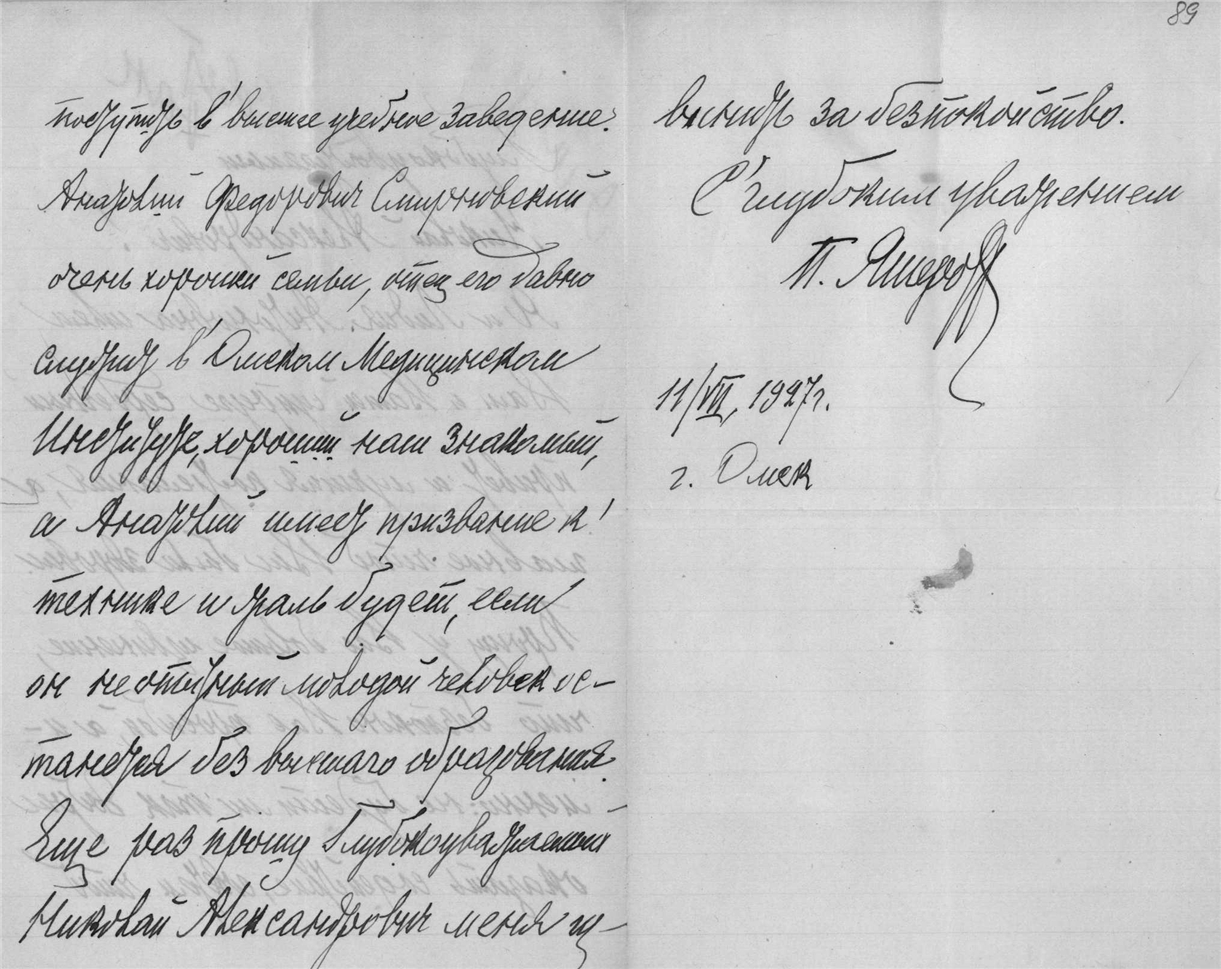 поступить в высшее учебное заведение.
Анатолий Федорович Смирновский
очень хорошей семьи, отец его давно
служит в Омском Медицинском
Институте, хороший наш знакомый,
а Анатолий имеет призвание к
технике и жаль будет, если
он неотпетый молодой человек ос-
танется без высшаго образования.
Еще раз прошу Глубокоуважаемый
Николай Александрович меня из-
89
винить за безпокойство.
С глубоким уважением
П. Яшероff
11/VII, 1927г.
г. Омск